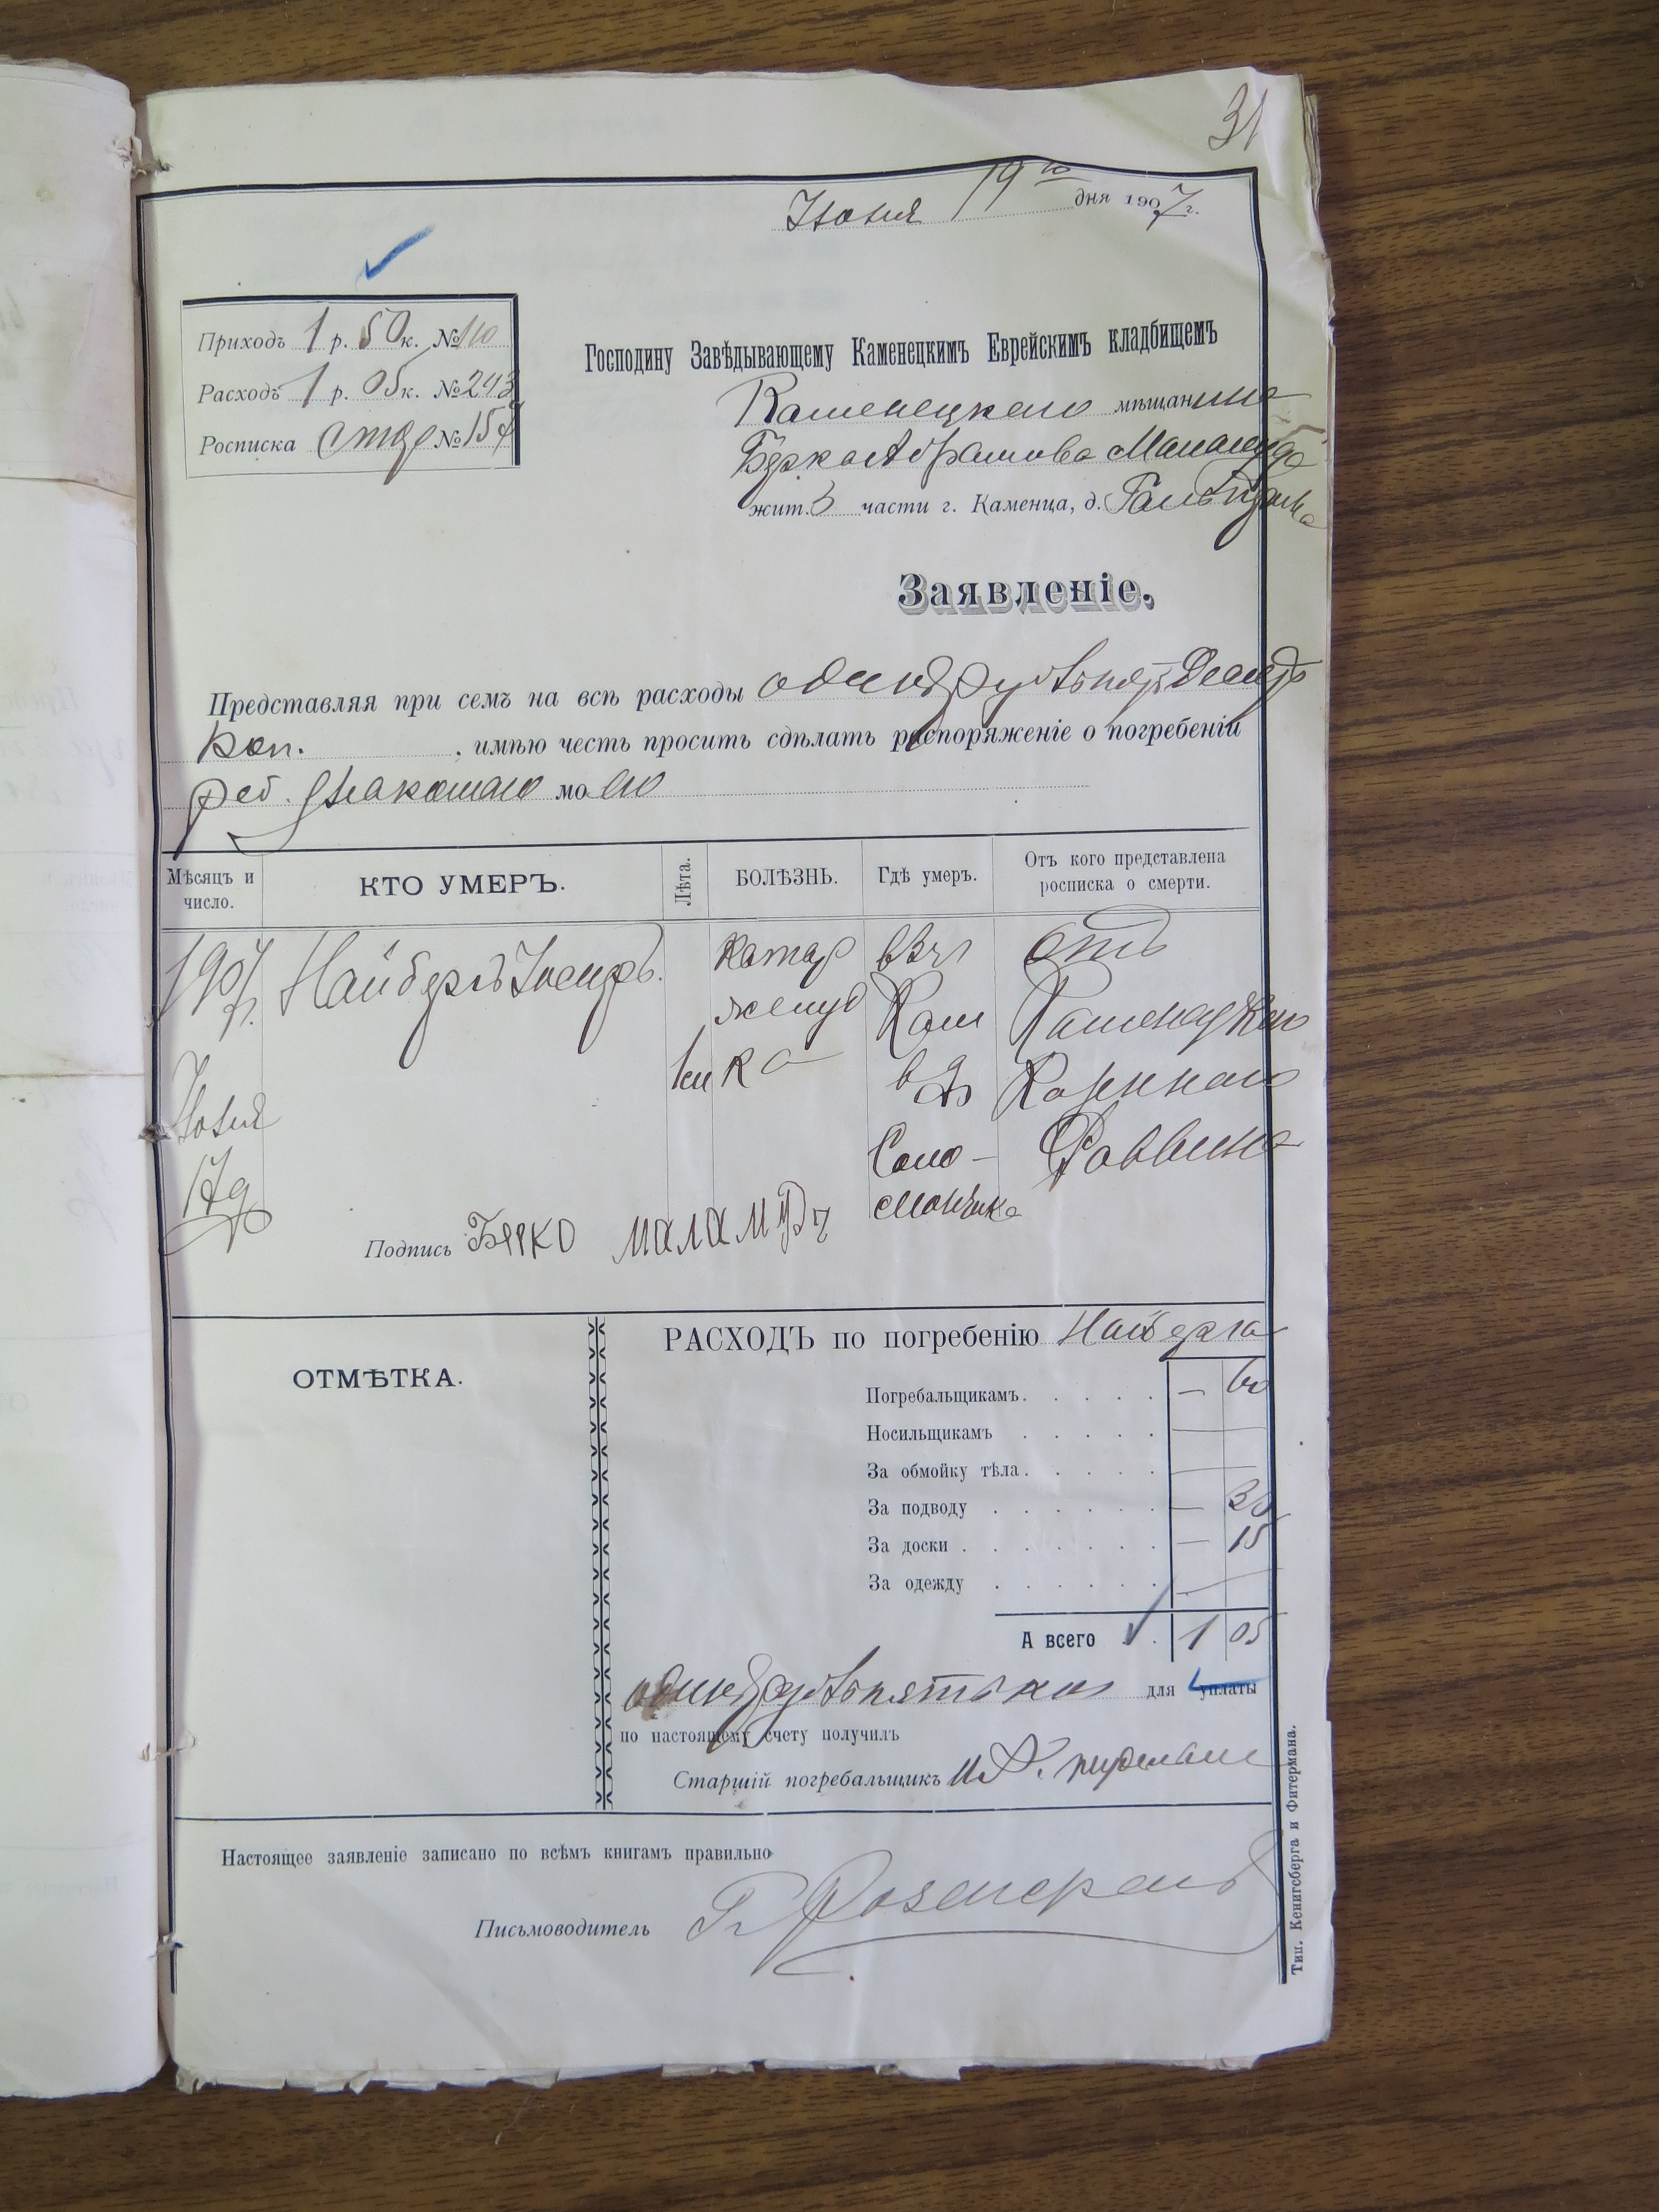 31
Июня 19го дня 1907 г.
Приходъ 1 р. 50 к. № 110
Расходъ 1 р. 05 к. № 243
Росписка № 157
Господину Завѣдывающему Каменецкимъ Еврейскимъ кладбищемъ
Каменецкаго мѣщанина
Берка Абрамова Маламуда
жит. 3 части г. Каменца, д.
Заявленіе.
Представляя при семъ на всѣ расходы одинъ рубль пятьдесятъ
коп. , имѣю честь просить сдѣлать распоряженіе о погребеніи
реб. знакомаго моего
Мѣсяцъ и число. КТО УМЕРЪ. Лѣта. БОЛѢЗНЬ. Гдѣ умеръ. Отъ кого представлена росписка о смерти.
1907 Найбергъ Іосифъ. катар въ 3 ч отъ
г. желуд Кам Каменецкаго
ка в д Казеннаго
Июня Соло- Раввина
17 д мончика
Подпись Берко маламудъ
РАСХОДЪ по погребенію Найберга
ОТМѢТКА.
Погребальщикамъ. . . . . — 60
Носильщикамъ . . . . . —
За обмойку тѣла. . . . . —
За подводу . . . . . — 30
За доски . . . . . . — 15
За одежду . . . . .
А всего . . 1 05
одинъ рубль пять коп для уплаты
по настоящему счету получилъ
Старшій погребальщикъ
Настоящее заявленіе записано по всѣмъ книгамъ правильно
Письмоводитель
Тип. Кенигсберга и Фитермана.